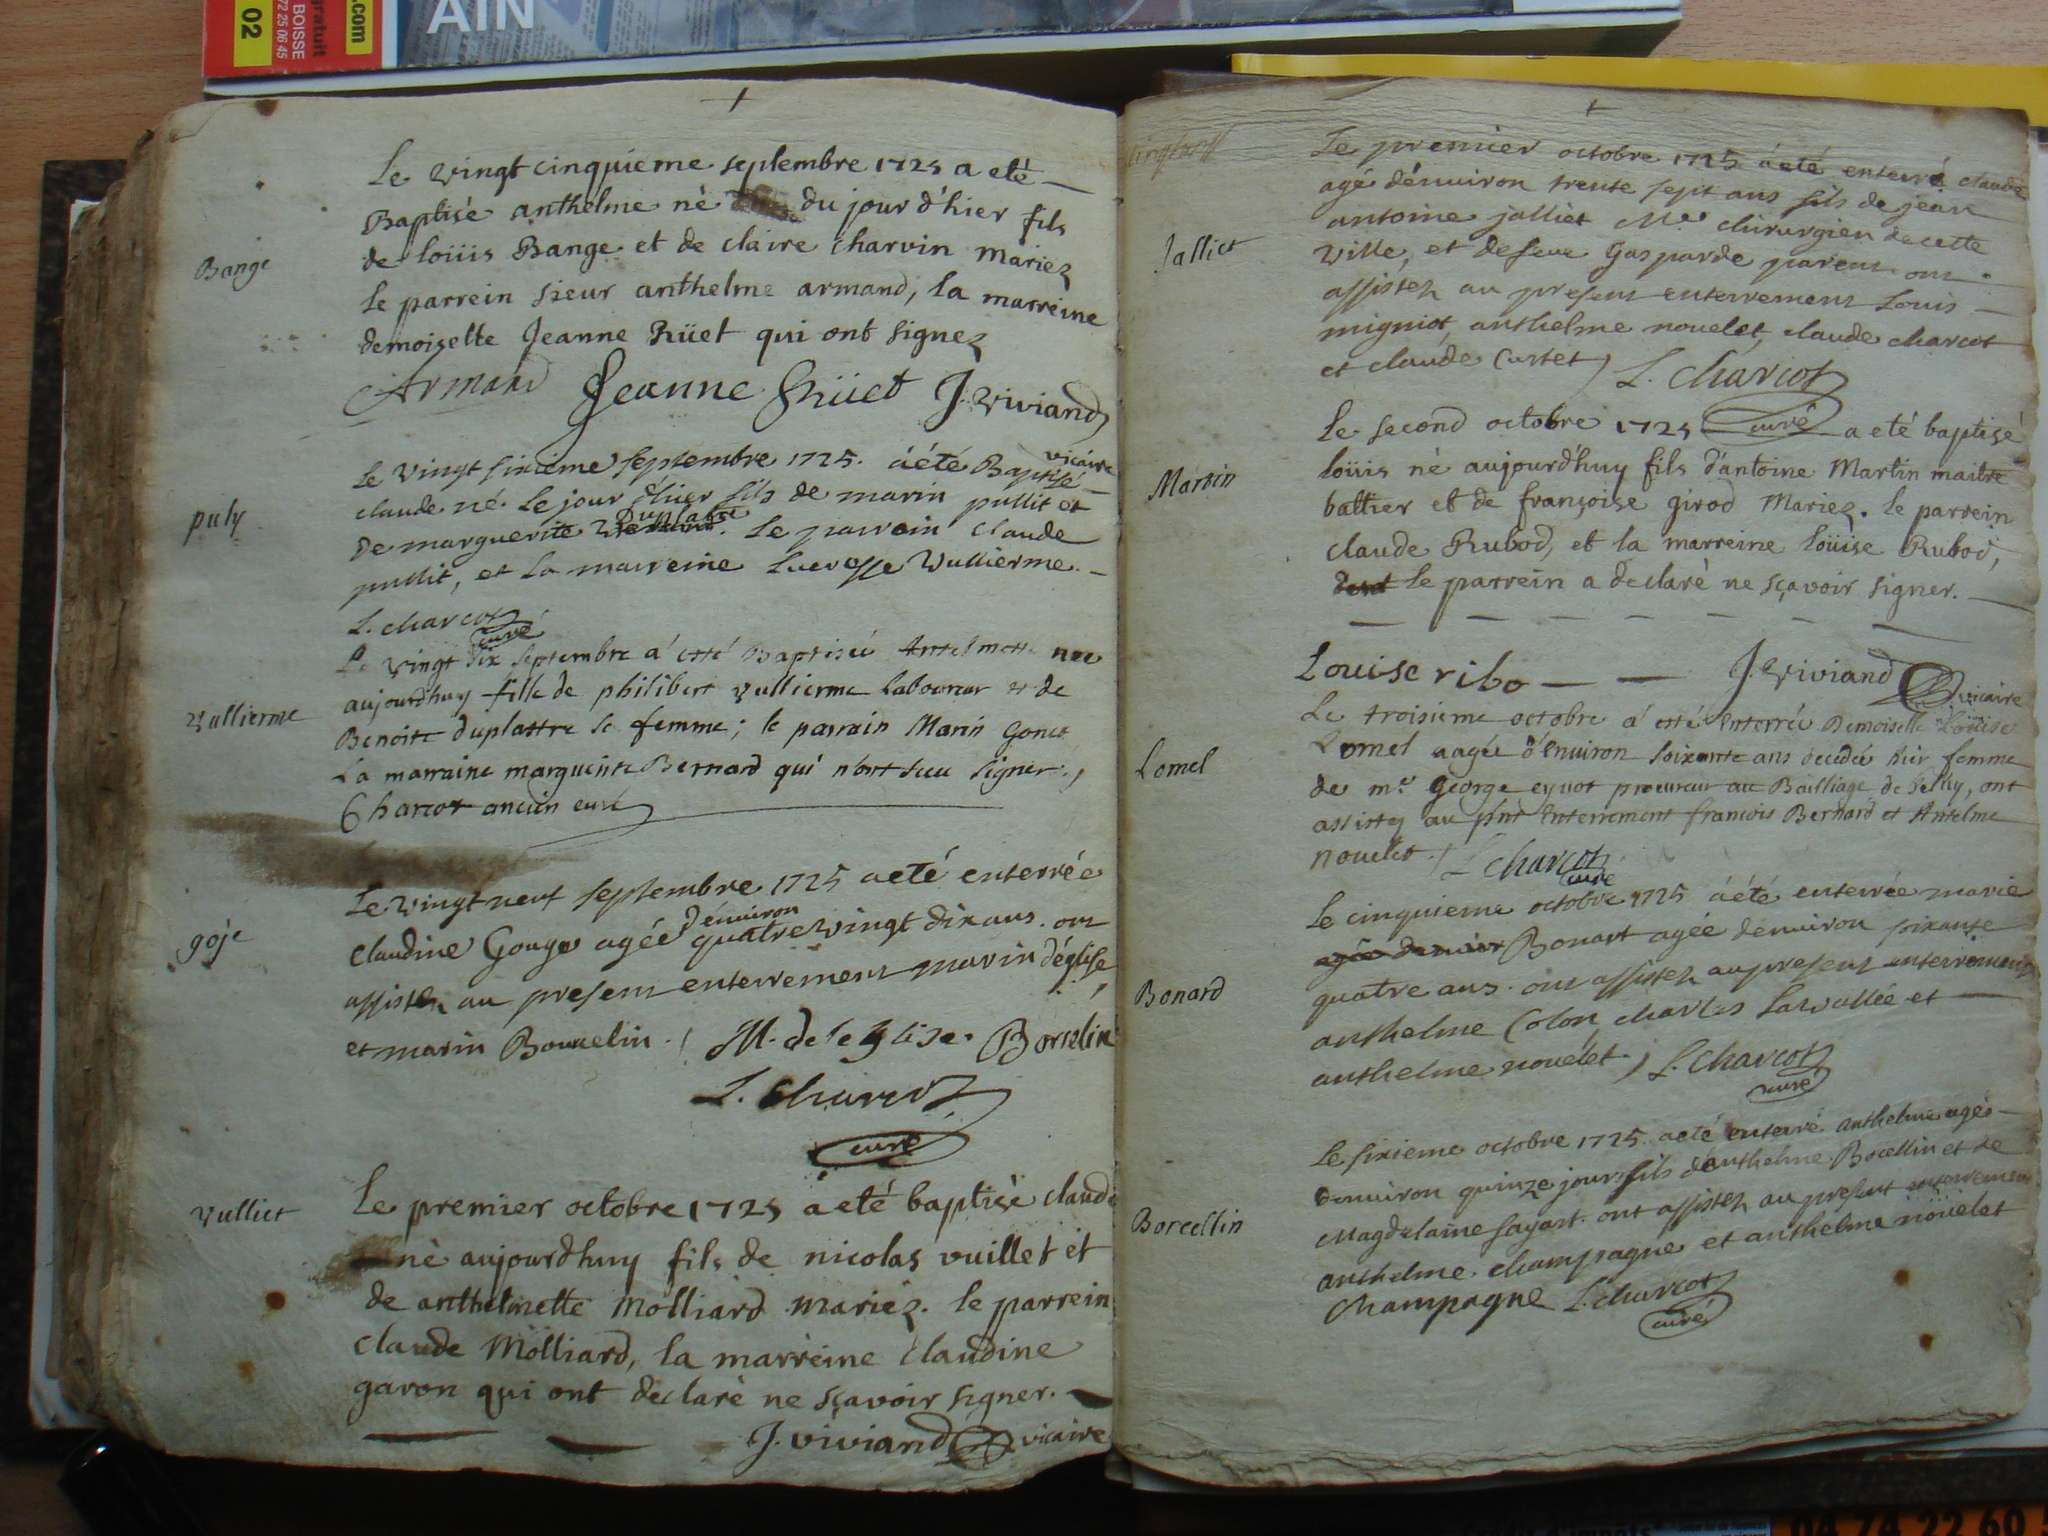 AIN
gratuit
.com
02
BOISSE
72 25 06 45
Le vingt cinquieme septembre 1725 a eté
Baptisè anthelme nè du jour d'hier fils
Bange
de loüis Bange et de claire charvin mariez
le parrein sieur anthelme armand, la marreine
demoiselle Jeanne Rüet qui ont signez
Armand Jeanne Rüet J. Viviand
vicaire
le vingt sixieme septembre 1725. a été Baptisé
puly
claude né le jour d'hier fils de marin pullit et
duplatre
de marguerite . Le parrein Claude
pullit, et La marreine Lucresse Vullierme.
L. charcot
curé
Le vingt six septembre a' esté Baptisée Antelmette née
aujourdhuy fille de philibert vullierme laboureur et de
Vullierme
Benoite duplattre sa femme; le parrain Marin Gonet
La marraine marguerite Bernard qui n'ont sceu signer.
Charcot ancien curé
Le vingt neuf septembre 1725 a eté enterrée
d'enuiron
goje
claudine Gouge agée quatre vingt dix ans. ont
assistez au present enterrement marin d'église,
et marin Bourcelin. M. de leglise. Borcelin
L. Charcot
curé
Vulliet
Le premier octobre 1725 a eté baptisè claude
nè aujourdhuy fils de nicolas vuillet et
de anthelmette Molliard mariez. le parrein
claude Molliard, la marrèine Claudine
garon qui ont declarè ne sçavoir signer.
J. viviand vicaire
Le premier octobre 1725 a eté enterré claude
agé d'enuiron trente sept ans fils de jean
antoine jalliet Me chirurgien de cette
Jalliet
ville, et de feue Gasparde parent ont
assistez au present enterrement Louis
migniot, anthelme nouelet, claude charcot
et claude Curtet L. Charcot
curé
Le second octobre 1725 a eté baptisé
Martin
loüis nè aujourd'huy fils d'antoine Martin maitre
battier et de françoise girod Mariez. le parrein
claude Rubod, et la marreine loüise Rubod,
dont le parrein a declarè ne sçavoir signer.
Louise ribo J. Viviand vicaire
Le troisieme octobre a' esté Enterrée Demoiselle Loüise
Lomel
Lomel aagée d'Enuiron soixante ans decedée hier femme
de mr. George eyuot procureur au Bailliage de Belley, ont
assistez au pnt Enterrement francois Bernard et Antelme
nouelet. L charcot
curé
Le cinquieme octobre 1725 a été enterrée marie
Bonart agée d'enuiron soixante
Bonard
quatre ans. ont assistez au present enterrement
anthelme Colon, charles Lavallée et
anthelme nouélet. L. Charcot
curé
Le sixieme octobre 1725 a eté enterré anthelme agé
d'enuiron quinze jours fils d'anthelme Bocellin et de
Borcellin
Magdelaine sayart. ont assistez au present enterrement
anthelme champagne et anthelme nouelet
champagne L. charcot
curé
04 74 22 60